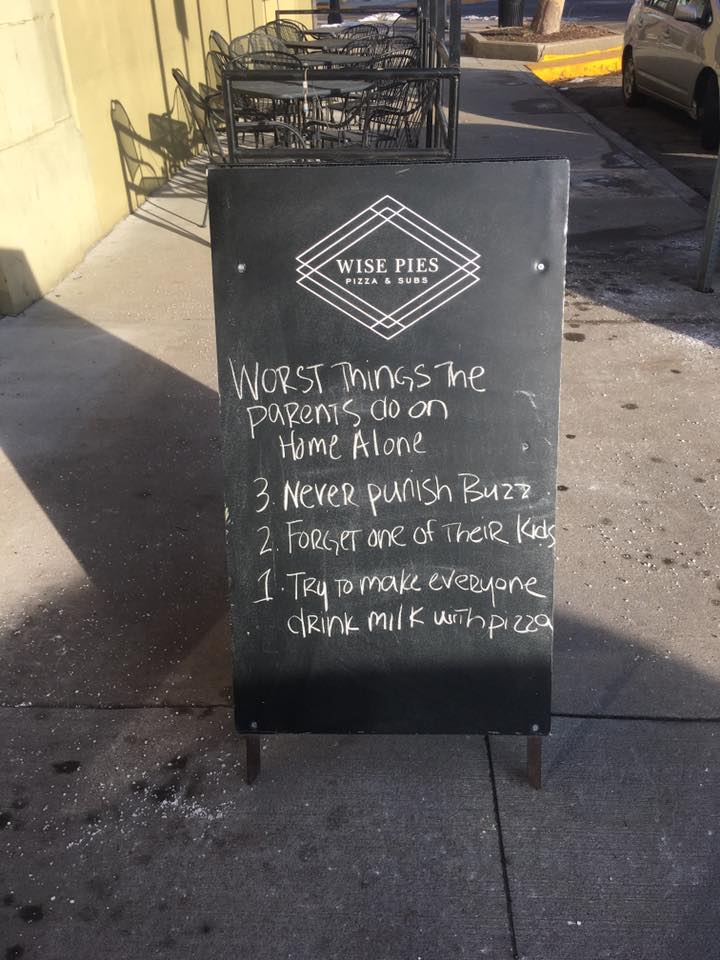 WISE PIES
PIZZA & SUBS
WORST THINGS THE
PARENTS do on
Home Alone
3. Never punish Buzz
2. Forget one of Their Kids
1. Try to make everyone
drink milk with pizza